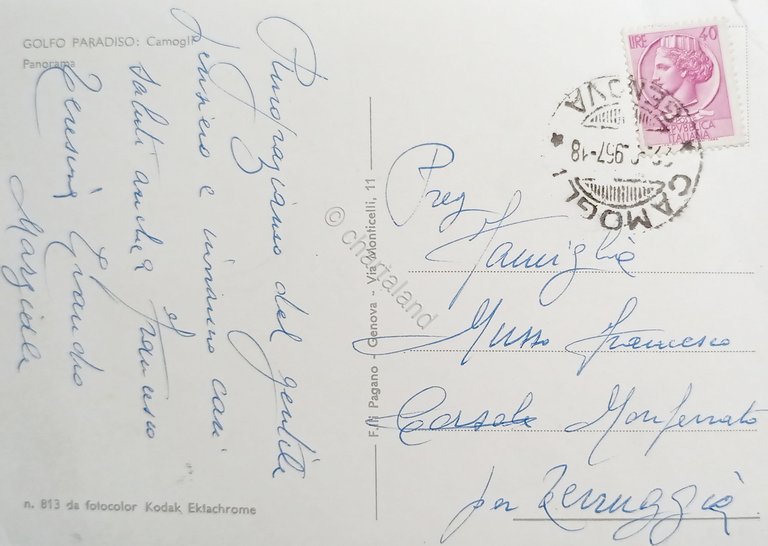 GOLFO PARADISO: Camogli
Panorama
Ringraziamo del gentile
pensiero e inviamo cari
saluti anche a Francesco
Teresina Claudio
Marziale
n. 813 da fotocolor Kodak Ektachrome
F.lli Pagano - Genova - Via Monticelli, 11
© chartaland
LIRE 40
POSTE
REPVBBLICA
ITALIANA
CAMOGLI
GENOVA
957-18
Preg
Famiglia
Musso Francesco
Casale Monferrato
per Terruggia